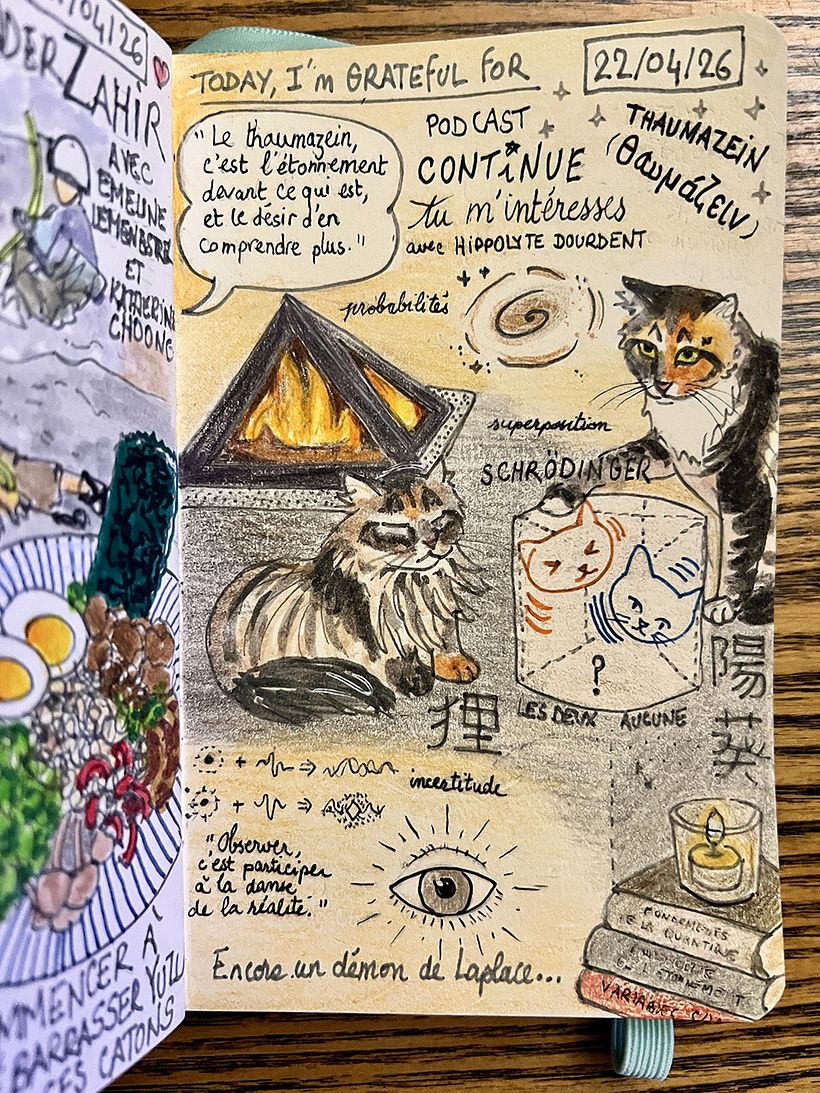 04/26
DER ZAHIR
AVEC
EMELINE
ET
KATHERINE
CHOONG
MMENCER À
BARRASSER YUZU
ES CATONS
TODAY, I'm GRATEFUL FOR
22/04/26
"Le thaumazein,
c'est l'étonnement
devant ce qui est,
et le désir d'en
comprendre plus."
PODCAST
CONTiNUE
tu m'intéresses
avec HiPPOLYTE DOURDENT
THAUMAZEIN
(θαυμάζειν)
probabilités
superposition
SCHRÖDINGER
?
LES DEUX AUCUNE
狸
陽
葵
+ ⇒
+ ⇒
incertitude
"Observer,
c'est participer
à la danse
de la réalité."
Encore un démon de Laplace...
FONDEMENTS
DE LA QUANTIQUE
DE L'ÉTONNEMENT
VARIABLES